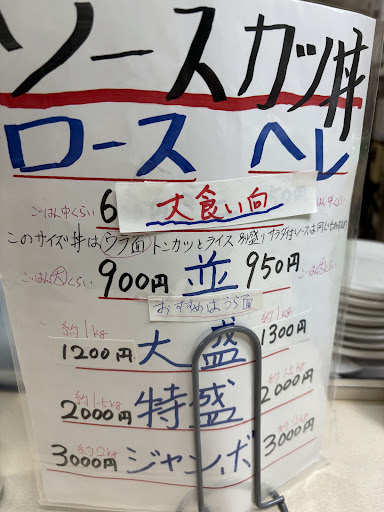 ソースカツ丼
ロース ヘレ
ごはん中くらい 6 大食い向
このサイズ丼はウラ面 トンカツとライス別盛り サラダ付
ごはん大くらい 900円 並 950円
おすすめはうら面
約1kg 約1kg
1200円 大盛 1300円
約1.5kg 約1.5kg
2000円 特盛 2000円
約2kg 約2kg
3000円 ジャンボ 3000円